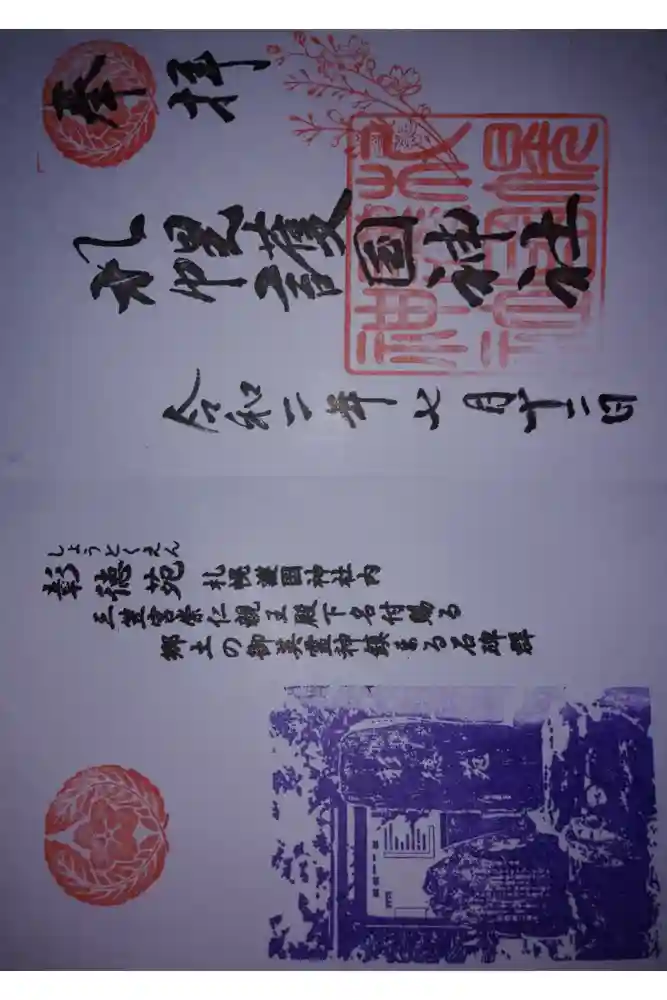 奉拝
札幌護國神社
令和二年七月十二日
しょうとくえん
彰徳苑 札幌護國神社内
三笠宮崇仁親王殿下名付賜る
郷土の御英霊神鎮まる石碑群
彰徳苑